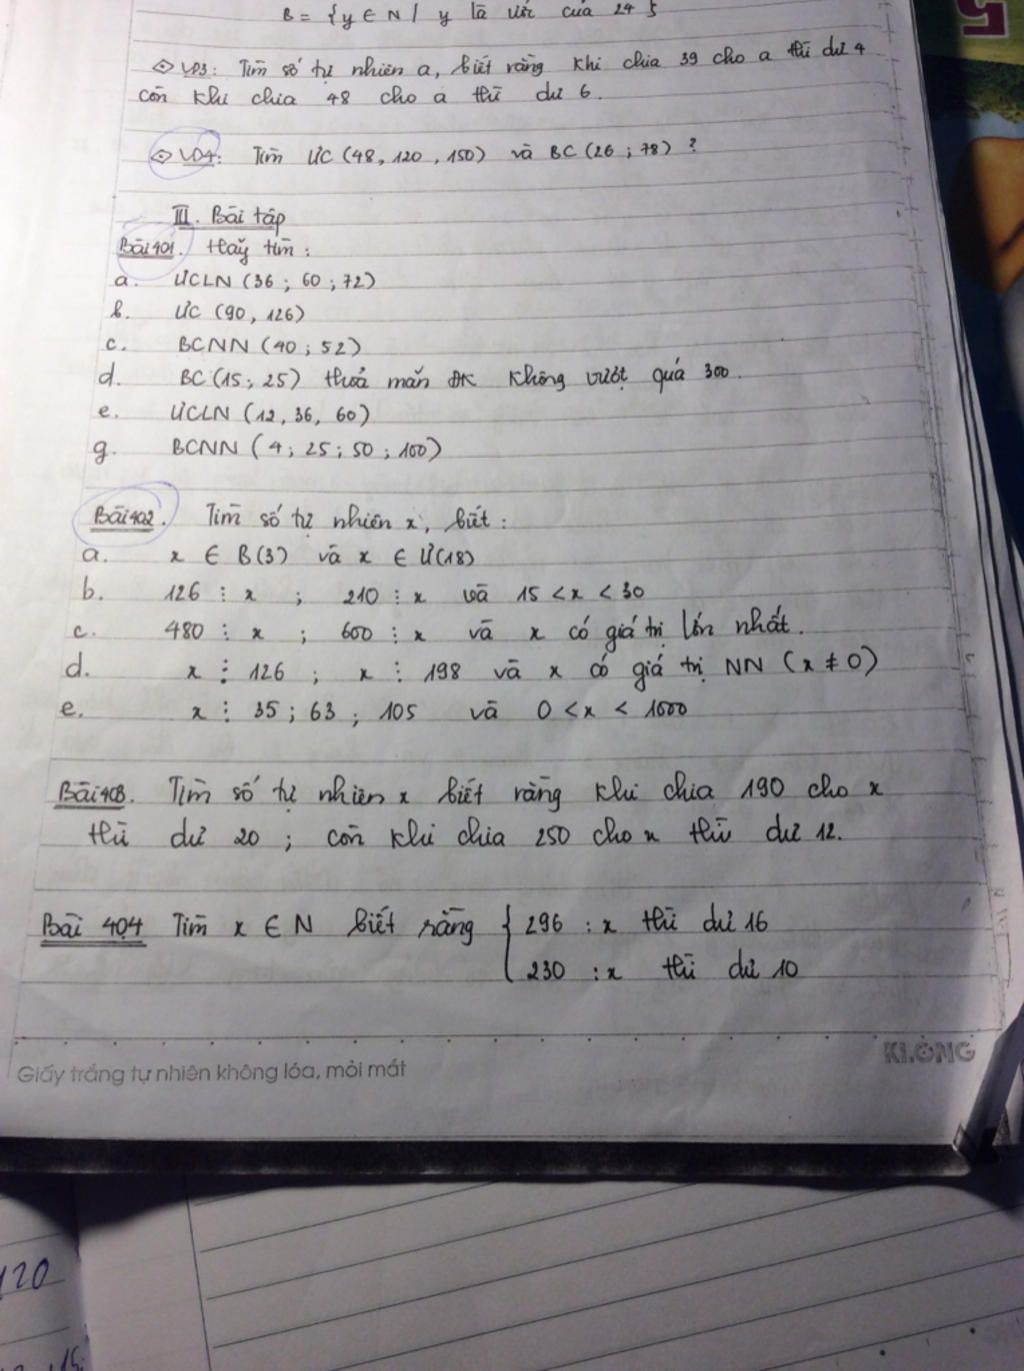 B = {y ∈ N / y là ước của 24}
VD3: Tìm số tự nhiên a, biết rằng khi chia 39 cho a thì dư 4
còn khi chia 48 cho a thì dư 6.
VD4: Tìm ƯC (48, 120, 150) và BC (26 ; 78) ?
III. Bài tập
Bài 401. Hãy tìm :
a. ƯCLN (36 ; 60 ; 72)
b. ƯC (90, 126)
c. BCNN (40 ; 52)
d. BC (15 ; 25) thoả mãn ĐK không vượt quá 300.
e. ƯCLN (12, 36, 60)
g. BCNN (4 ; 25 ; 50 ; 100)
Bài 402. Tìm số tự nhiên x, biết :
a. x ∈ B(3) và x ∈ Ư(18)
b. 126 ⋮ x ; 210 ⋮ x và 15 < x < 30
c. 480 ⋮ x ; 600 ⋮ x và x có giá trị lớn nhất.
d. x ⋮ 126 ; x ⋮ 198 và x có giá trị NN (x ≠ 0)
e. x ⋮ 35 ; 63 ; 105 và 0 < x < 1000
Bài 403. Tìm số tự nhiên x biết rằng khi chia 190 cho x
thì dư 20 ; còn khi chia 250 cho x thì dư 12.
Bài 404 Tìm x ∈ N biết rằng { 296 : x thì dư 16
230 : x thì dư 10
KLONG
Giấy trắng tự nhiên không lóa, mỏi mắt
120